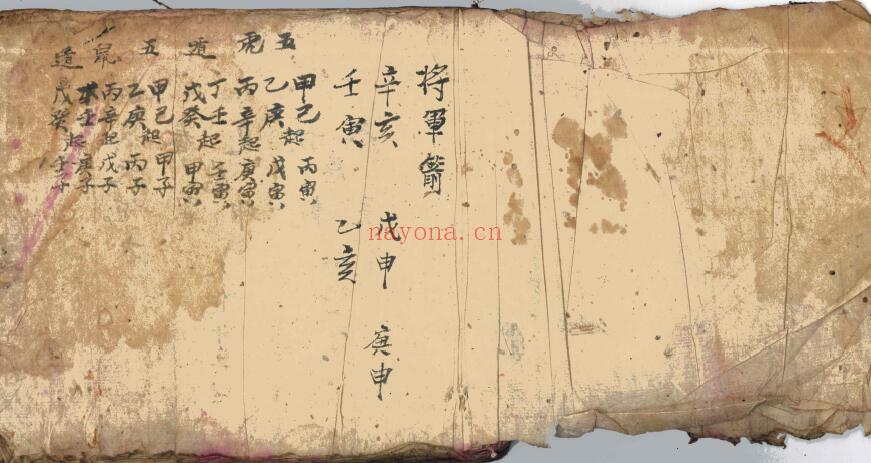 将軍箭
辛亥 戊申 庚申
壬寅 乙亥
五虎道
甲己起丙寅
乙庚 戊寅
丙辛起庚寅
丁壬起壬寅
戊癸 甲寅
五鼠道
甲己起甲子
乙庚 丙子
丙辛起戊子
壬 庚子
戊癸起壬子
nayona.cn